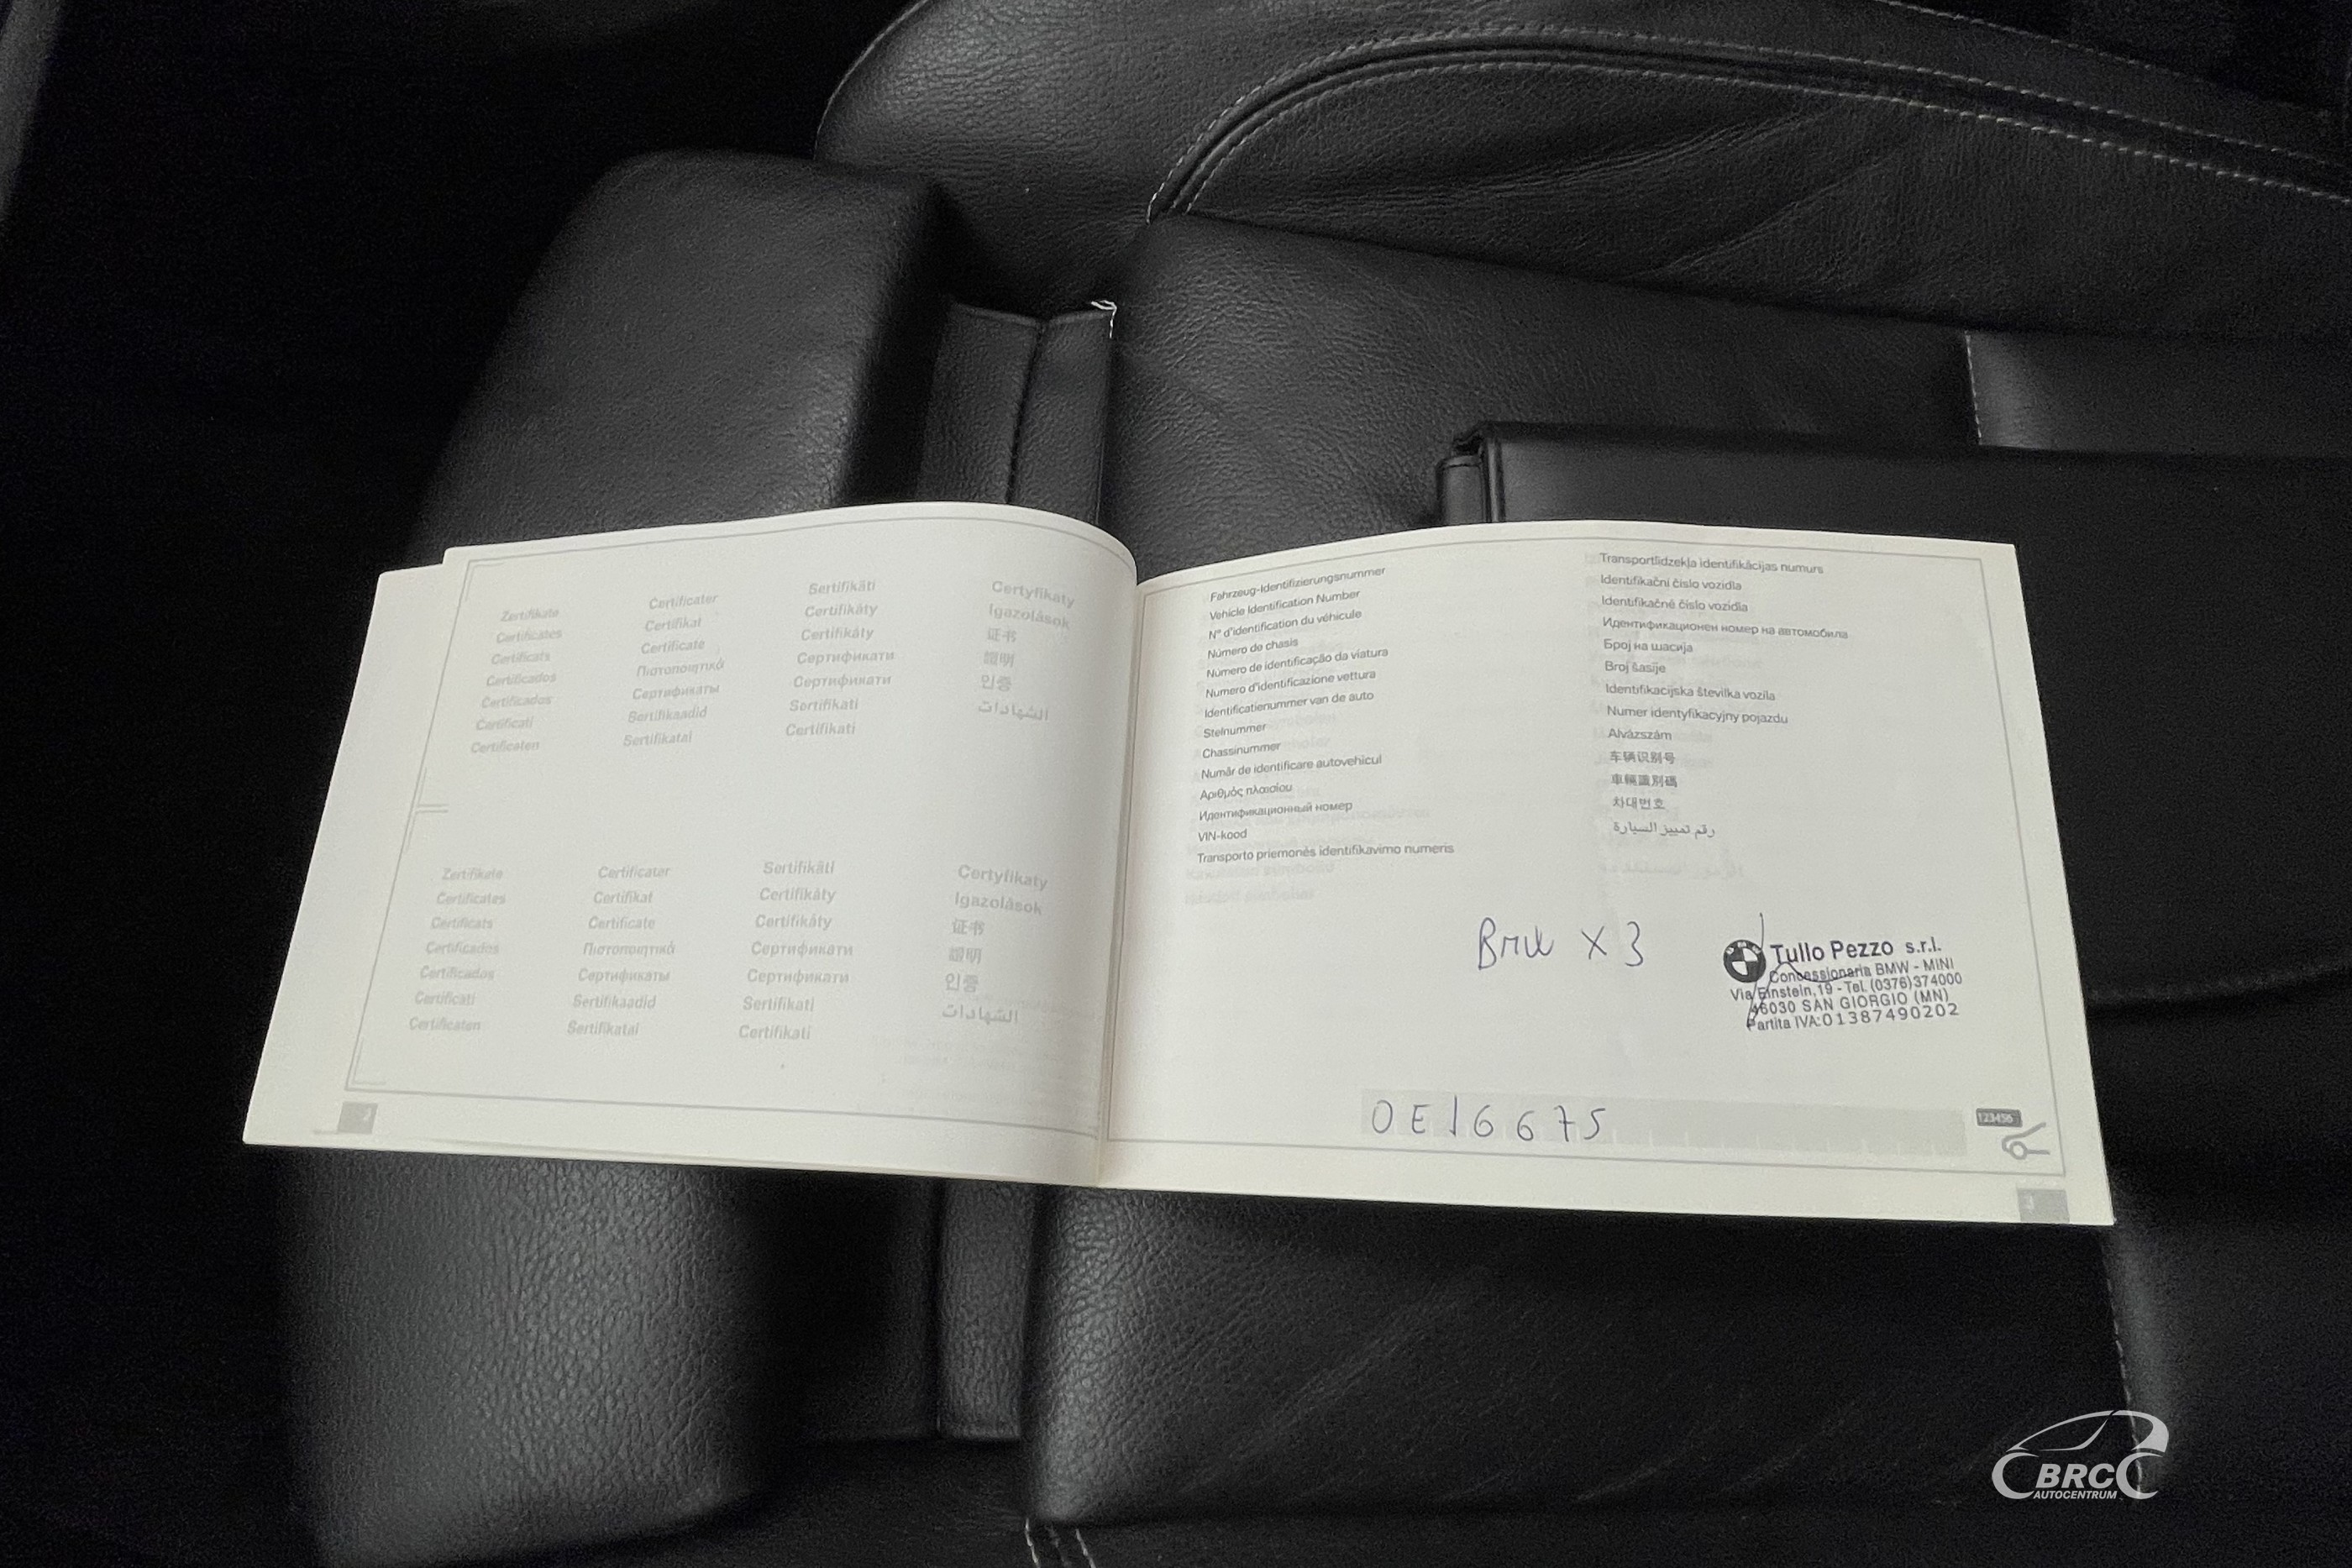 Zertifikate
Certificates
Certificats
Certificados
Certificados
Certificati
Certificaten
Certificater
Certifikat
Certificate
Πιστοποιητικά
Сертификаты
Sertifikaadid
Sertifikatai
Sertifikāti
Certifikáty
Certifikáty
Сертификати
Сертификати
Sertifikati
Certifikati
Certyfikaty
Igazolások
证书
證明
인증
الشهادات
Zertifikate
Certificates
Certificats
Certificados
Certificados
Certificati
Certificaten
Certificater
Certifikat
Certificate
Πιστοποιητικά
Сертификаты
Sertifikaadid
Sertifikatai
Sertifikāti
Certifikáty
Certifikáty
Сертификати
Сертификати
Sertifikati
Certifikati
Certyfikaty
Igazolások
证书
證明
인증
الشهادات
Fahrzeug-Identifizierungsnummer
Vehicle Identification Number
N° d'identification du véhicule
Número de chasis
Número de identificação da viatura
Numero d'identificazione vettura
Identificatienummer van de auto
Stelnummer
Chassinummer
Număr de identificare autovehicul
Αριθμός πλαισίου
Идентификационный номер
VIN-kood
Transporto priemonės identifikavimo numeris
Transportlīdzekļa identifikācijas numurs
Identifikační číslo vozidla
Identifikačné číslo vozidla
Идентификационен номер на автомобила
Број на шасија
Broj šasije
Identifikacijska številka vozila
Numer identyfikacyjny pojazdu
Alvázszám
车辆识别号
車輛識別碼
차대번호
رقم تمييز السيارة
BMW X3
Tullo Pezzo s.r.l.
Concessionaria BMW - MINI
Via Einstein, 19 - Tel. (0376)374000
46030 SAN GIORGIO (MN)
Partita IVA:01387490202
0E16675
123456
3
BRC
AUTOCENTRUM